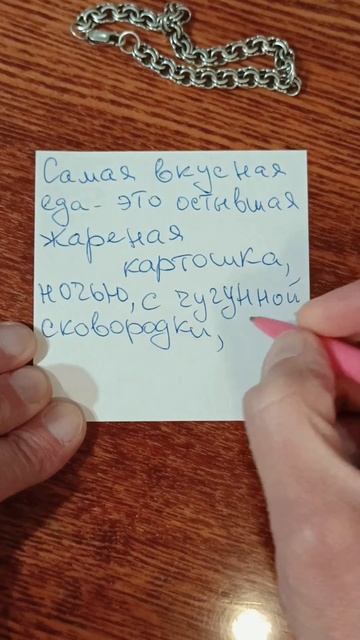 Самая вкусная
еда - это остывшая
жареная
картошка,
ночью, с чугунной
сковородки,